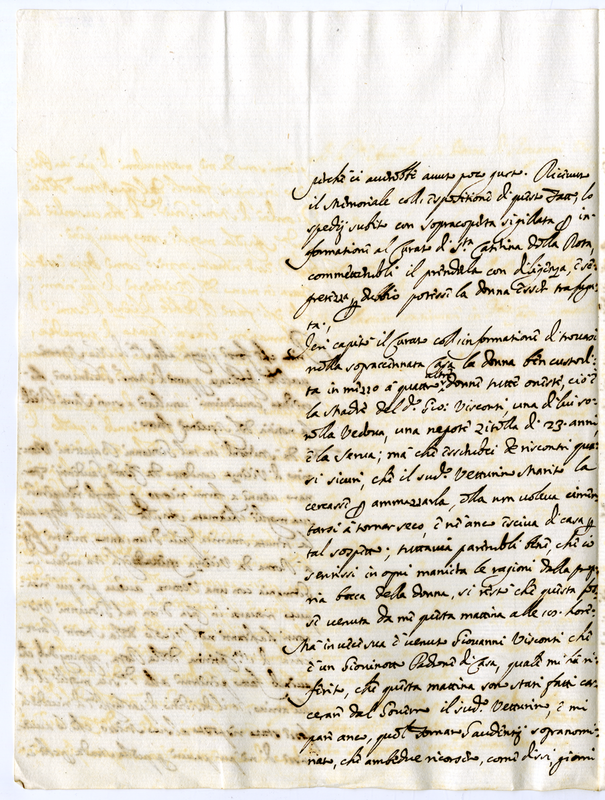 perche ci averebbe avuto poco gusto. Ricevuto
il Memoriale coll'espositione di questo Fatto, lo
spedij subito con sopracoperta sigillata per in-
formatione al Curato di Sta. Cattina della Rota,
commettendoli il prenderla con diligenza, e se-
fretezza per dubbio potesse la donna esser trafuga-
ta;
Jeri capitò il Curato coll'informatione di trovarsi
nella sopracennata Casa la donna ben custodi-
ta in mezzo à quattro altre donne tutte oneste, cioè è
la Madre del d. Gio: Visconti, una di lui so-
rella Vedova, una nepote Zitella di 23. anni
è la Serva; ma che essendosi de riscontri qua-
si sicuri, che il sud. Vetturino Marito la
cercasse per ammazzarla, ella non voleva cimen-
tarsi à tornar seco, è ne anco esciva di casa per
tal sospetto; tuttavia parendoli bene, che io
sentissi in ogni maniera le ragioni dalla prop-
ria bocca della donna, si restò che questa fos-
si venuta da me questa mattina alle hore:
Mà in vece sua è venuto Giovanni Visconti che
è un Giovinotto Padrone di Casa, quale mi hà ri-
ferito, che questa mattina son stati fatti car-
cerare dal Governo il sud. Vetturino, è mi
pare anco, quel Tomaso Gaudenzij sopranomi-
nato, che ambedue ricorsero, come dissi, giorni